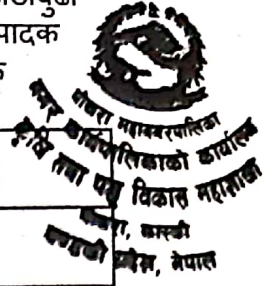 पादक
पोखरा महानगरपालिका
नगर कार्यपालिकाको कार्यालय
कृषि तथा पशु विकास महाशाखा
पोखरा, कास्की
गण्डकी प्रदेश, नेपाल